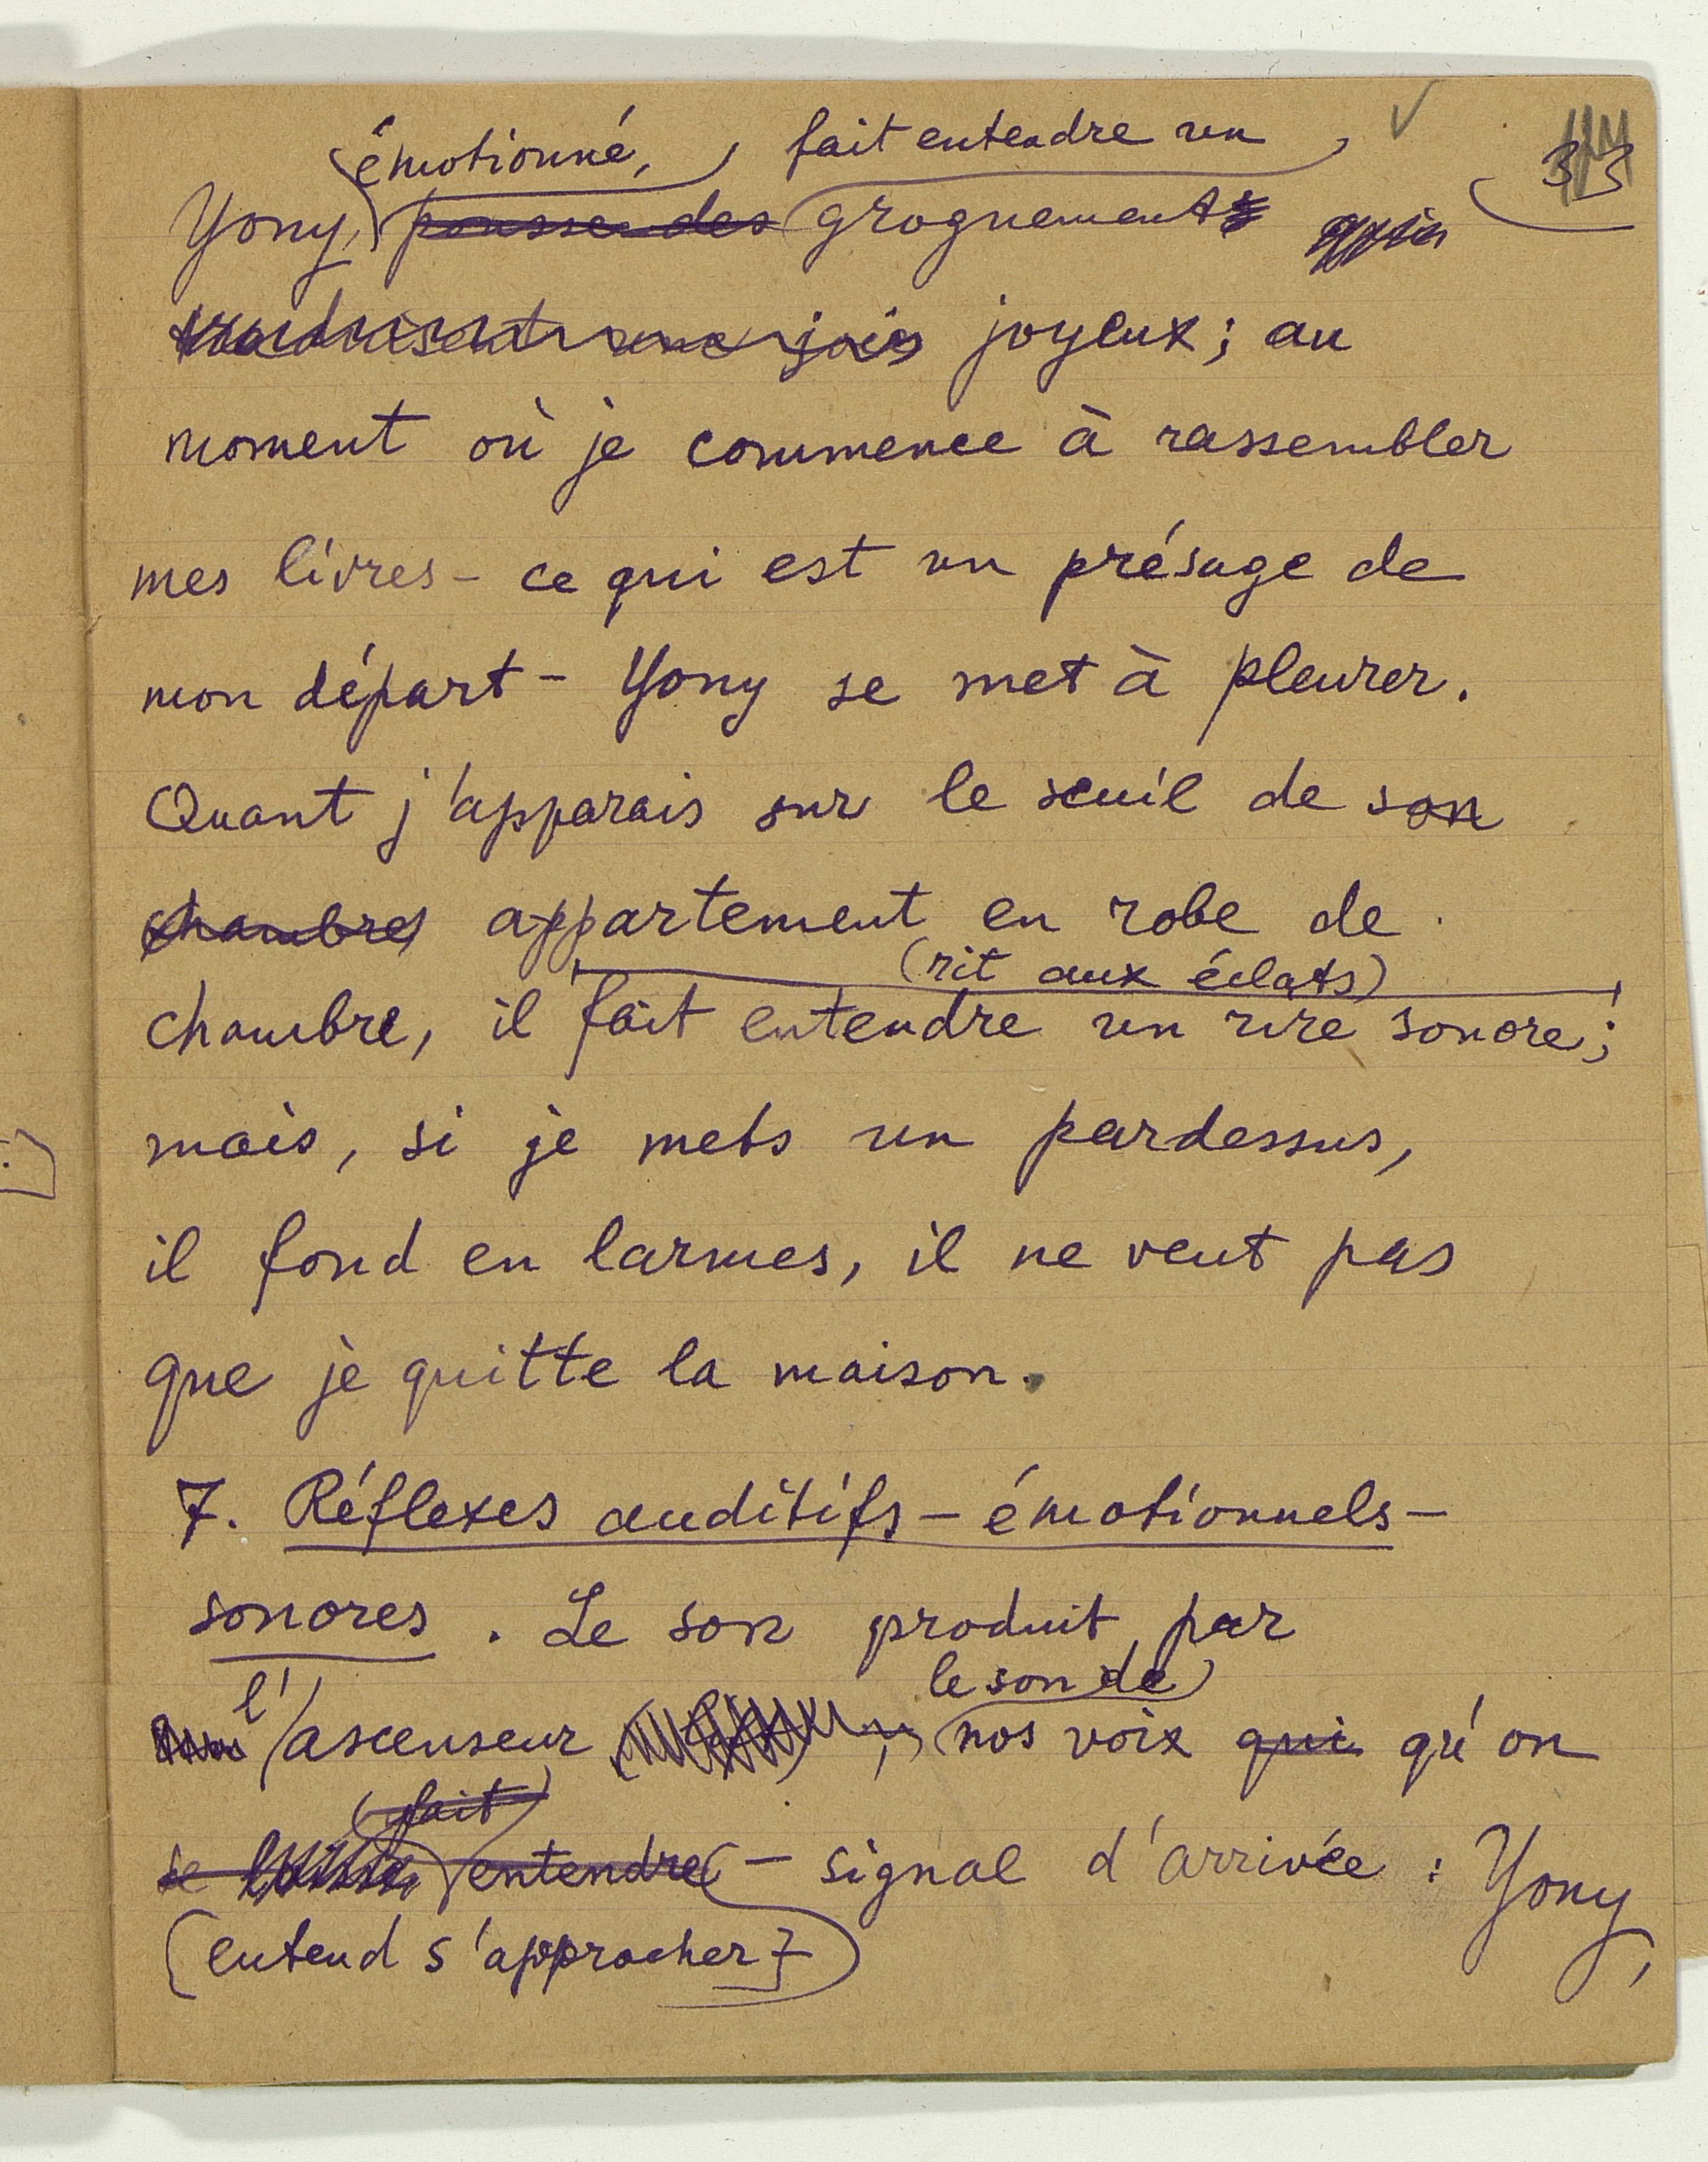 33
émotionné, fait entendre un
Yony, pousse des grognements qui
traduisent une joie joyeux; au
moment où je commence à rassembler
mes livres - ce qui est un présage de
mon départ - Yony se met à pleurer.
Quant j'apparais sur le seuil de son
chambre appartement en robe de
(rit aux éclats)
chambre, il fait entendre un rire sonore;
mais, si je mets un pardessus,
il fond en larmes, il ne veut pas
que je quitte la maison.
7. Réflexes auditifs - émotionnels -
sonores. Le son produit par
l' le son de
ascenseur, nos voix qui qu'on
fait
se entendre - signal d'arrivée : Yony,
(entend s'approcher)